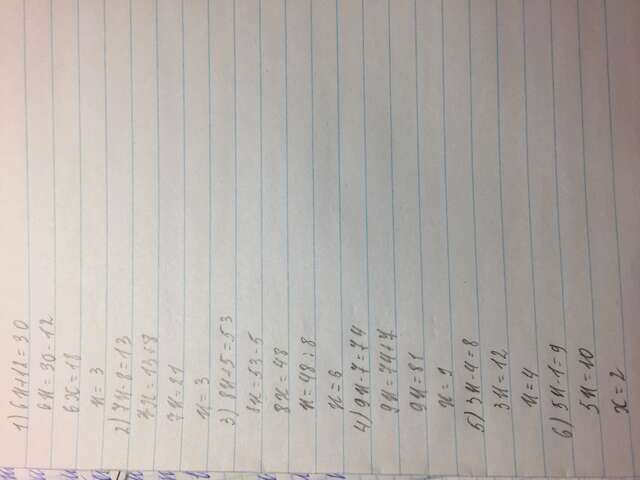 1) 6x+12=30
6x=30-12
6x=18
x=3
2) 7x-8=13
7x=13+8
7x=21
x=3
3) 8x+5=53
8x=53-5
8x=48
x=48:8
x=6
4) 9x-7=74
9x=74+7
9x=81
x=9
5) 3x-4=8
3x=12
x=4
6) 5x-1=9
5x=10
x=2